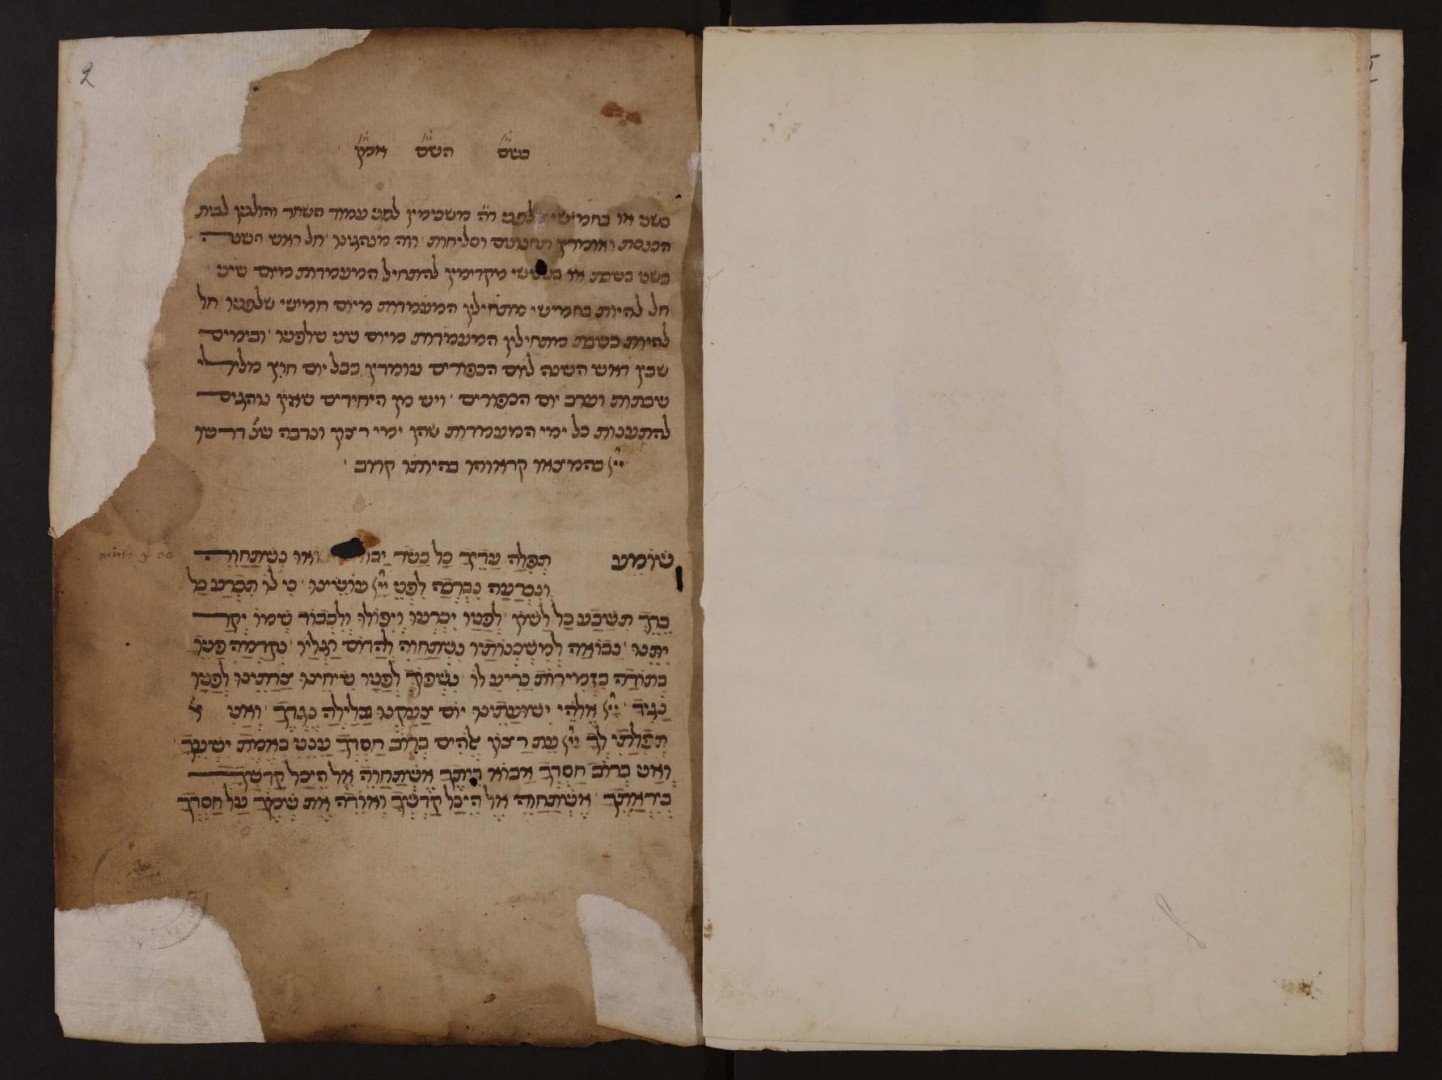 2
בשם השם אמן
בשני או בחמישי שלפני ר״ה משכימין לפני עמוד השחר והולכין לבית
הכנסת ואומרין תחנונים וסליחות וזה מנהגינו חל ראש השנה
בשני בשבת או בששי מקדימין להתחיל המעמדות מיום שיני
חל להיות בחמישי מתחילין המעמדות מיום חמישי שלפניו חל
להיות בשבת מתחילין המעמדות מיום שיני שלפניו ובימים
שבין ראש השנה ליום הכפורים עומדין בכל יום חוץ מלילי
שבתות וערב יום הכפורים ויש מן היחידים שאין נוהגים
להתענות כל ימי המעמדות שהן ימי רצון וקרבה שנ׳ דרשו
יי׳ בהמצאו קראוהו בהיותו קרוב
שׁוֹמֵעַ תְּפִלָּה עָדֶיךָ כָּל בָּשָׂר יבואו נִשְׁתַּחֲוֶה
וְנִכְרָעָה נִבְרְכָה לִפְנֵי יי׳ עוֹשֵׂינוּ כִּי לוֹ תִּכְרַע כָּל
בֶּרֶךְ תִּשָּׁבַע כָּל לָשׁוֹן לְפָנָיו יִכְרְעוּ וְיִפּוֹלוּ וְלִכְבוֹד שְׁמוֹ יְקָר
יִתֵּנוּ נָבוֹאָה לְמִשְׁכְּנוֹתָיו נִשְׁתַּחֲוֶה לַהֲדוֹם רַגְלָיו נְקַדְּמָה פָנָיו
בְּתוֹדָה בִּזְמִירוֹת נָרִיעַ לוֹ נִשְׁפּוֹךְ לְפָנָיו שִׂיחֵינוּ צָרָתֵינוּ לְפָנָיו
נַגִּיד יי׳ אֱלֹהֵי יְשׁוּעָתֵינוּ יוֹם צָעַקְנוּ בַלַּיְלָה נֶגְדֶּךָ וַאֲנִי
תְפִלָּתִי לְךָ יי׳ עֵת רָצוֹן אֱלֹהִים בְּרוֹב חַסְדֶּךָ עֲנֵנִי בֶּאֱמֶת יִשְׁעֶךָ
וַאֲנִי בְּרוֹב חַסְדְּךָ אָבוֹא בֵיתֶךָ אֶשְׁתַּחֲוֶה אֶל הֵיכַל קָדְשְׁךָ
בְּיִרְאָתֶךָ אֶשְׁתַּחֲוֶה אֶל הֵיכַל קָדְשְׁךָ וְאוֹדֶה אֶת שְׁמֶךָ עַל חַסְדְּךָ